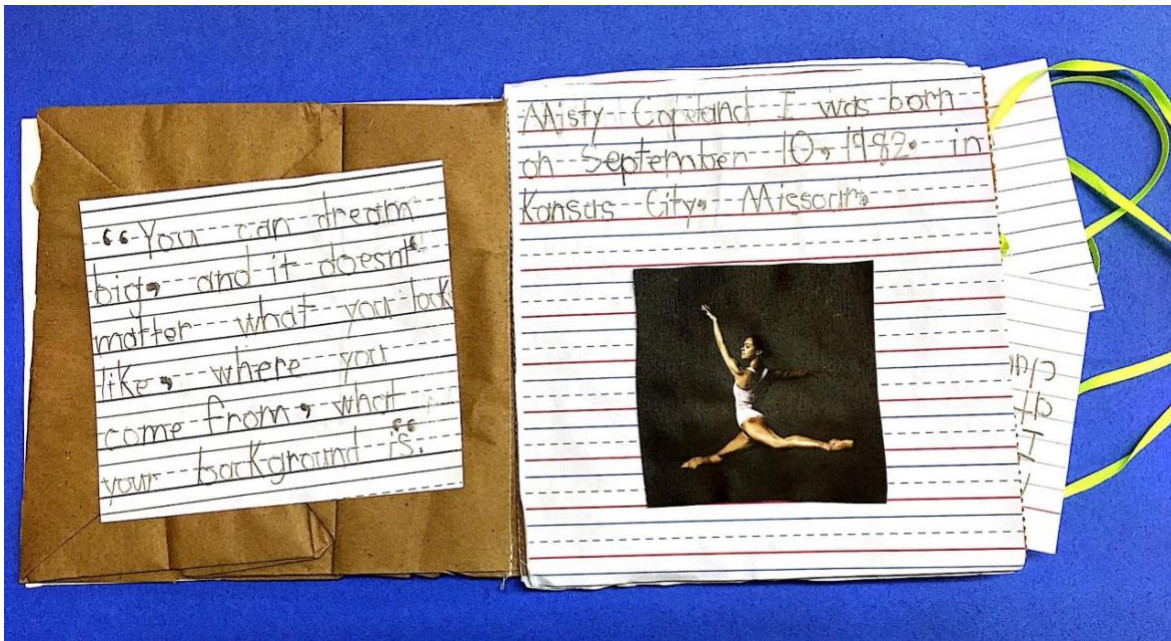 “You can dream
big, and it doesnt“
matter what you look
like, where you
come from, what
your background is.“
Misty Copeland I was born
on September 10, 1982. in
Kansas City, Missouri.